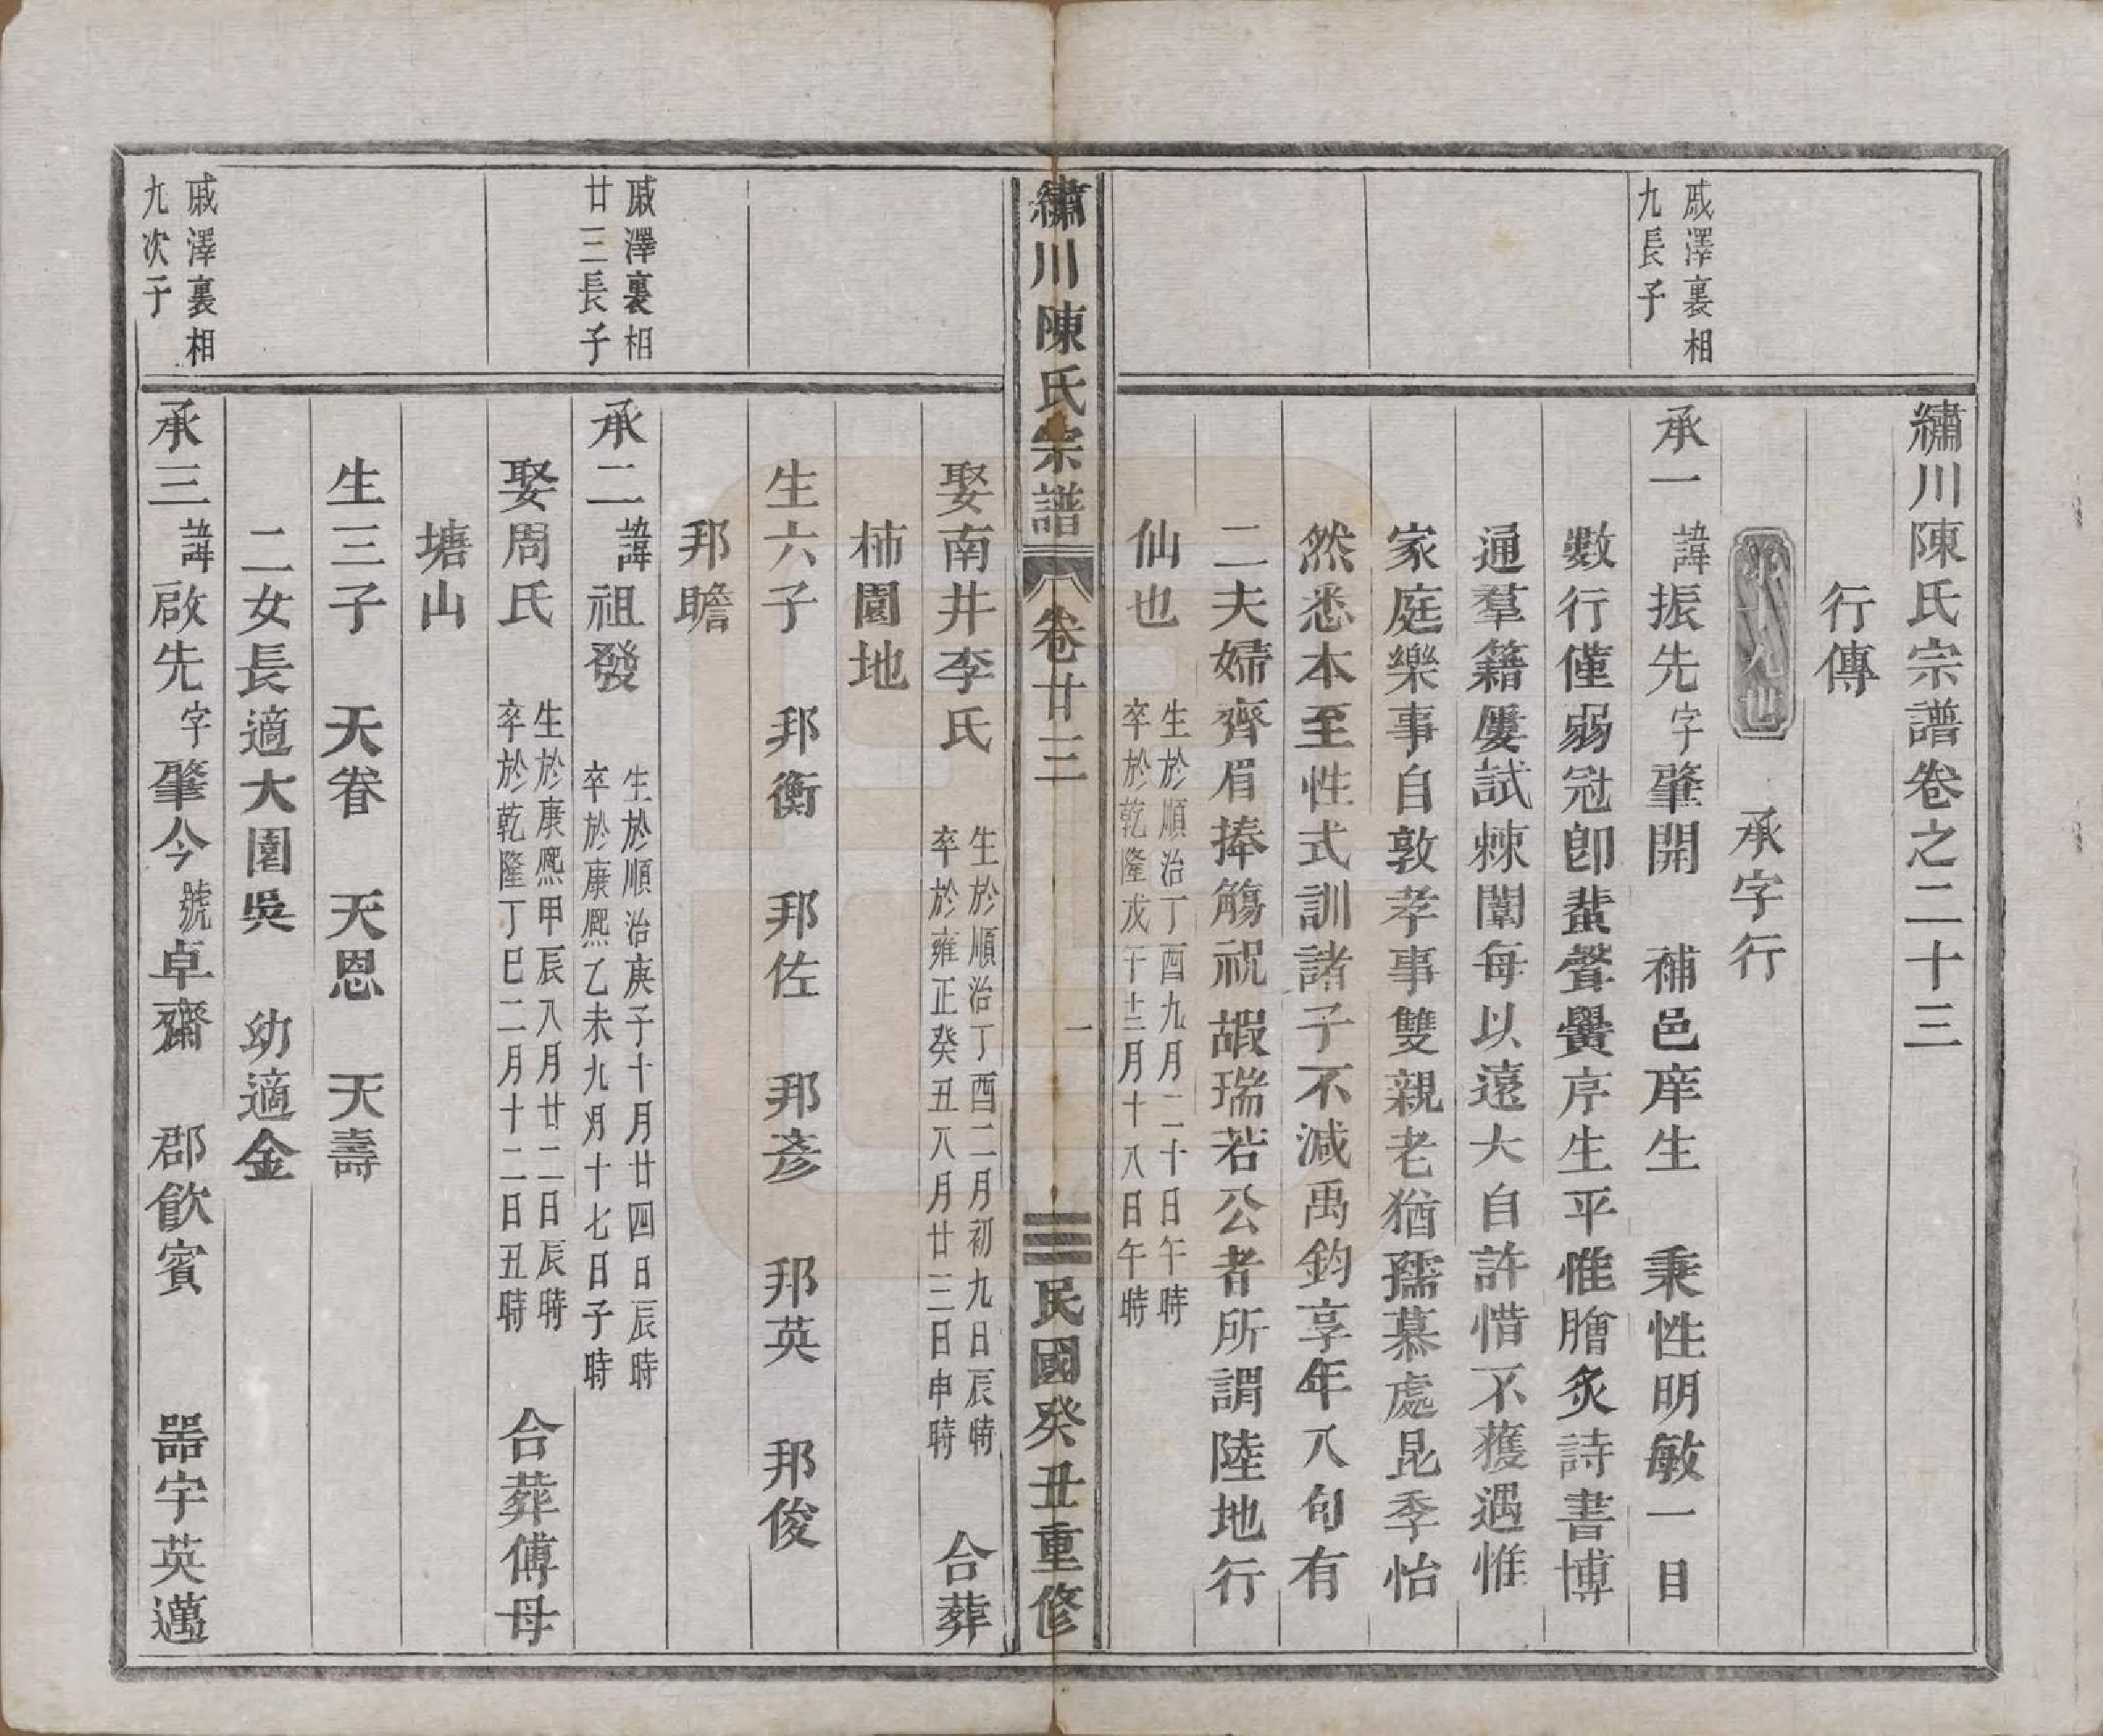 繡川陳氏宗譜卷之二十三
行傳
第十九世　承字行
戚澤裏相
九長子
承一　諱振先字肇開　補邑庠生　秉性明敏一目
數行僅弱冠卽蜚聲黌序生平惟膾炙詩書博
通羣籍屢試棘闈每以遠大自許惜不獲遇惟
家庭樂事自敦孝事雙親老猶孺慕處昆季怡
然悉本至性式訓諸子不減禹鈞享年八旬有
二夫婦齊眉捧觴祝嘏瑞若公者所謂陸地行
仙也
生於順治丁酉九月二十日午時
卒於乾隆戊午十二月十八日午時
繡川陳氏宗譜　卷廿三　一　民國癸丑重修
娶南井李氏
生於順治丁酉二月初九日辰時
卒於雍正癸丑八月廿三日申時
合葬
柿園地
生六子　邦衡　邦佐　邦彥　邦英　邦俊
邦瞻
戚澤裏相
廿三長子
承二　諱祖發
生於順治庚子十月廿四日辰時
卒於康熙乙未九月十七日子時
娶周氏
生於康熙甲辰八月廿二日辰時
卒於乾隆丁巳二月十二日丑時
合葬傅母
塘山
生三子　天眷　天恩　天壽
二女長適大園吳　幼適金
戚澤裏相
九次子
承三　諱啟先字肇今號卓齋　郡飮賓　器宇英邁